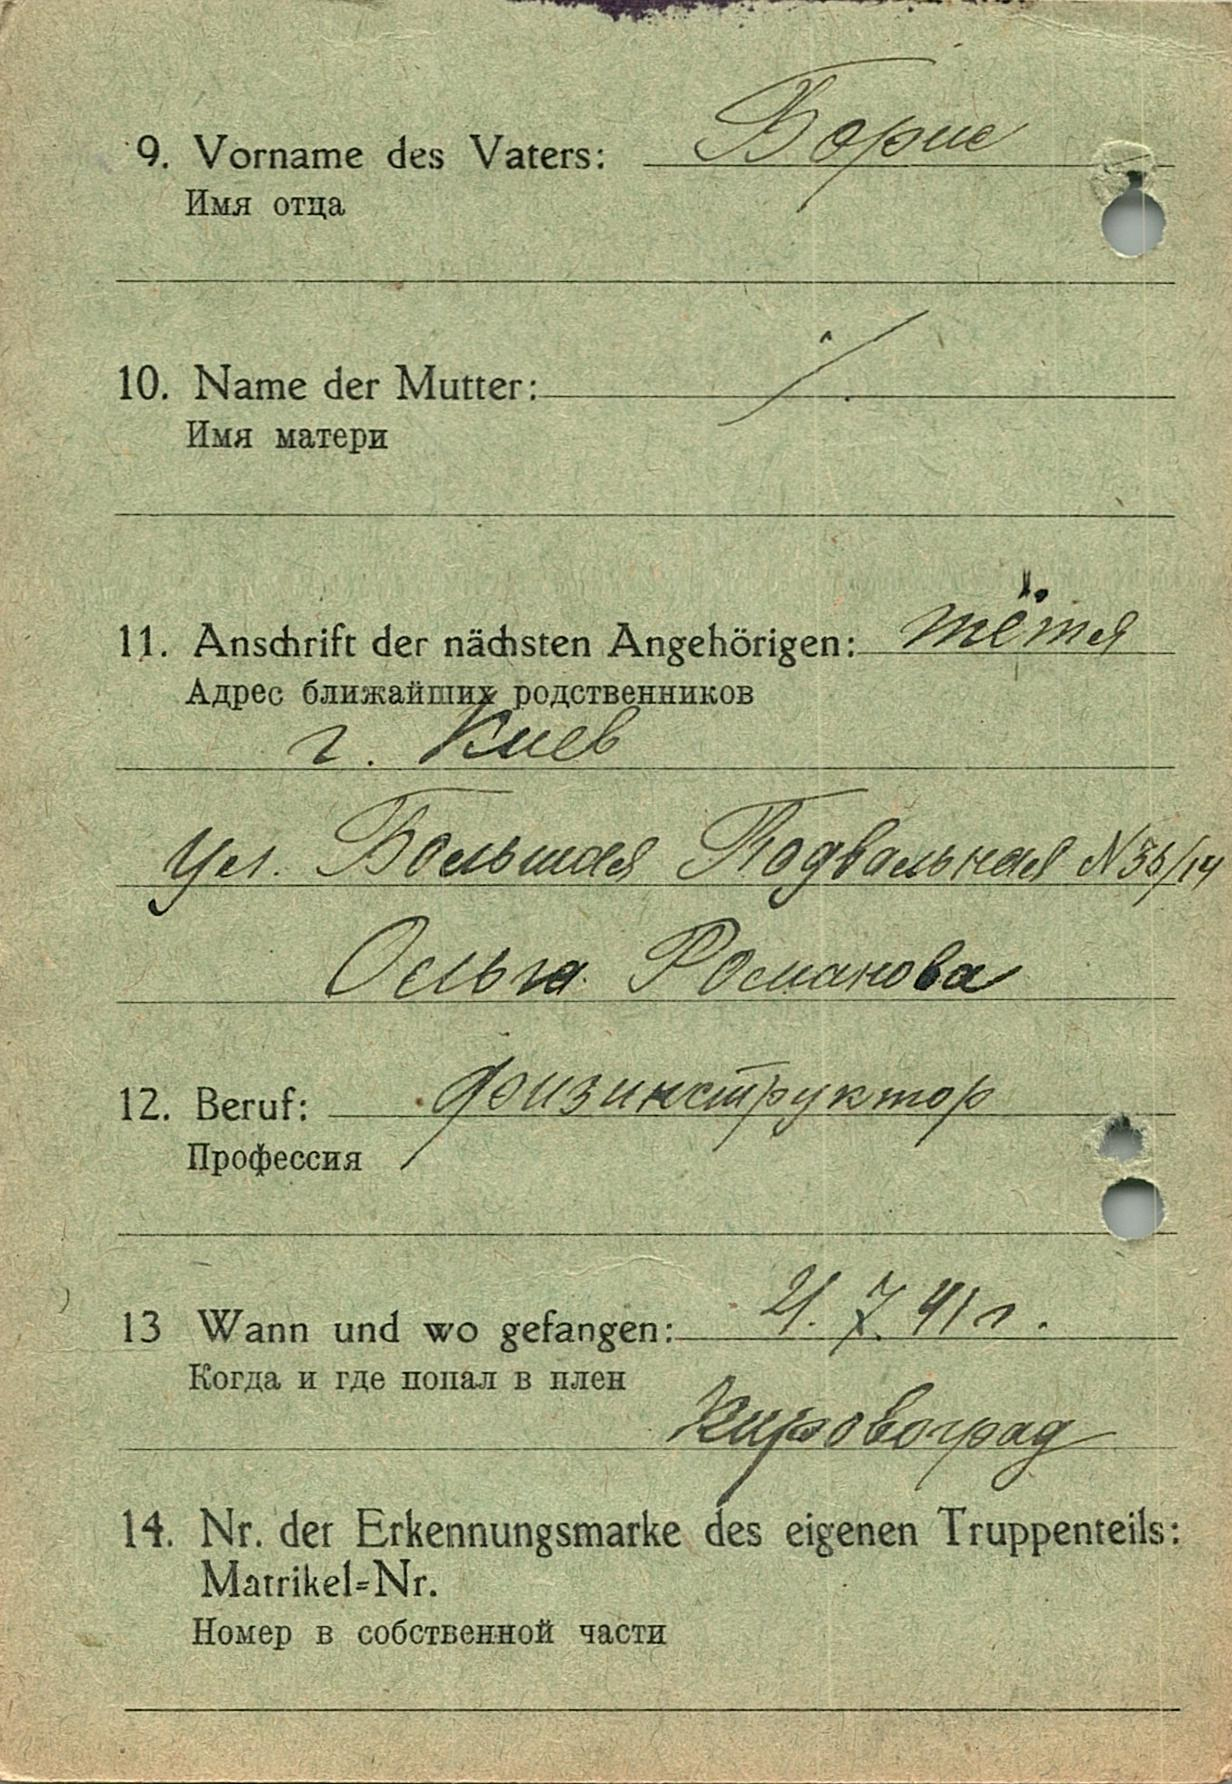 9. Vorname des Vaters: Борис
Имя отца
10. Name der Mutter: ⁒
Имя матери
11. Anschrift der nächsten Angehörigen: тётя
Адрес ближайших родственников
г. Киев
ул. Большая Подвальная N 35/14
Ольга Романова
12. Beruf: физинструктор
Профессия
13 Wann und wo gefangen: 21. 7. 41 г.
Когда и где попал в плен
Кировоград
14. Nr. der Erkennungsmarke des eigenen Truppenteils:
Matrikel=Nr.
Номер в собственной части